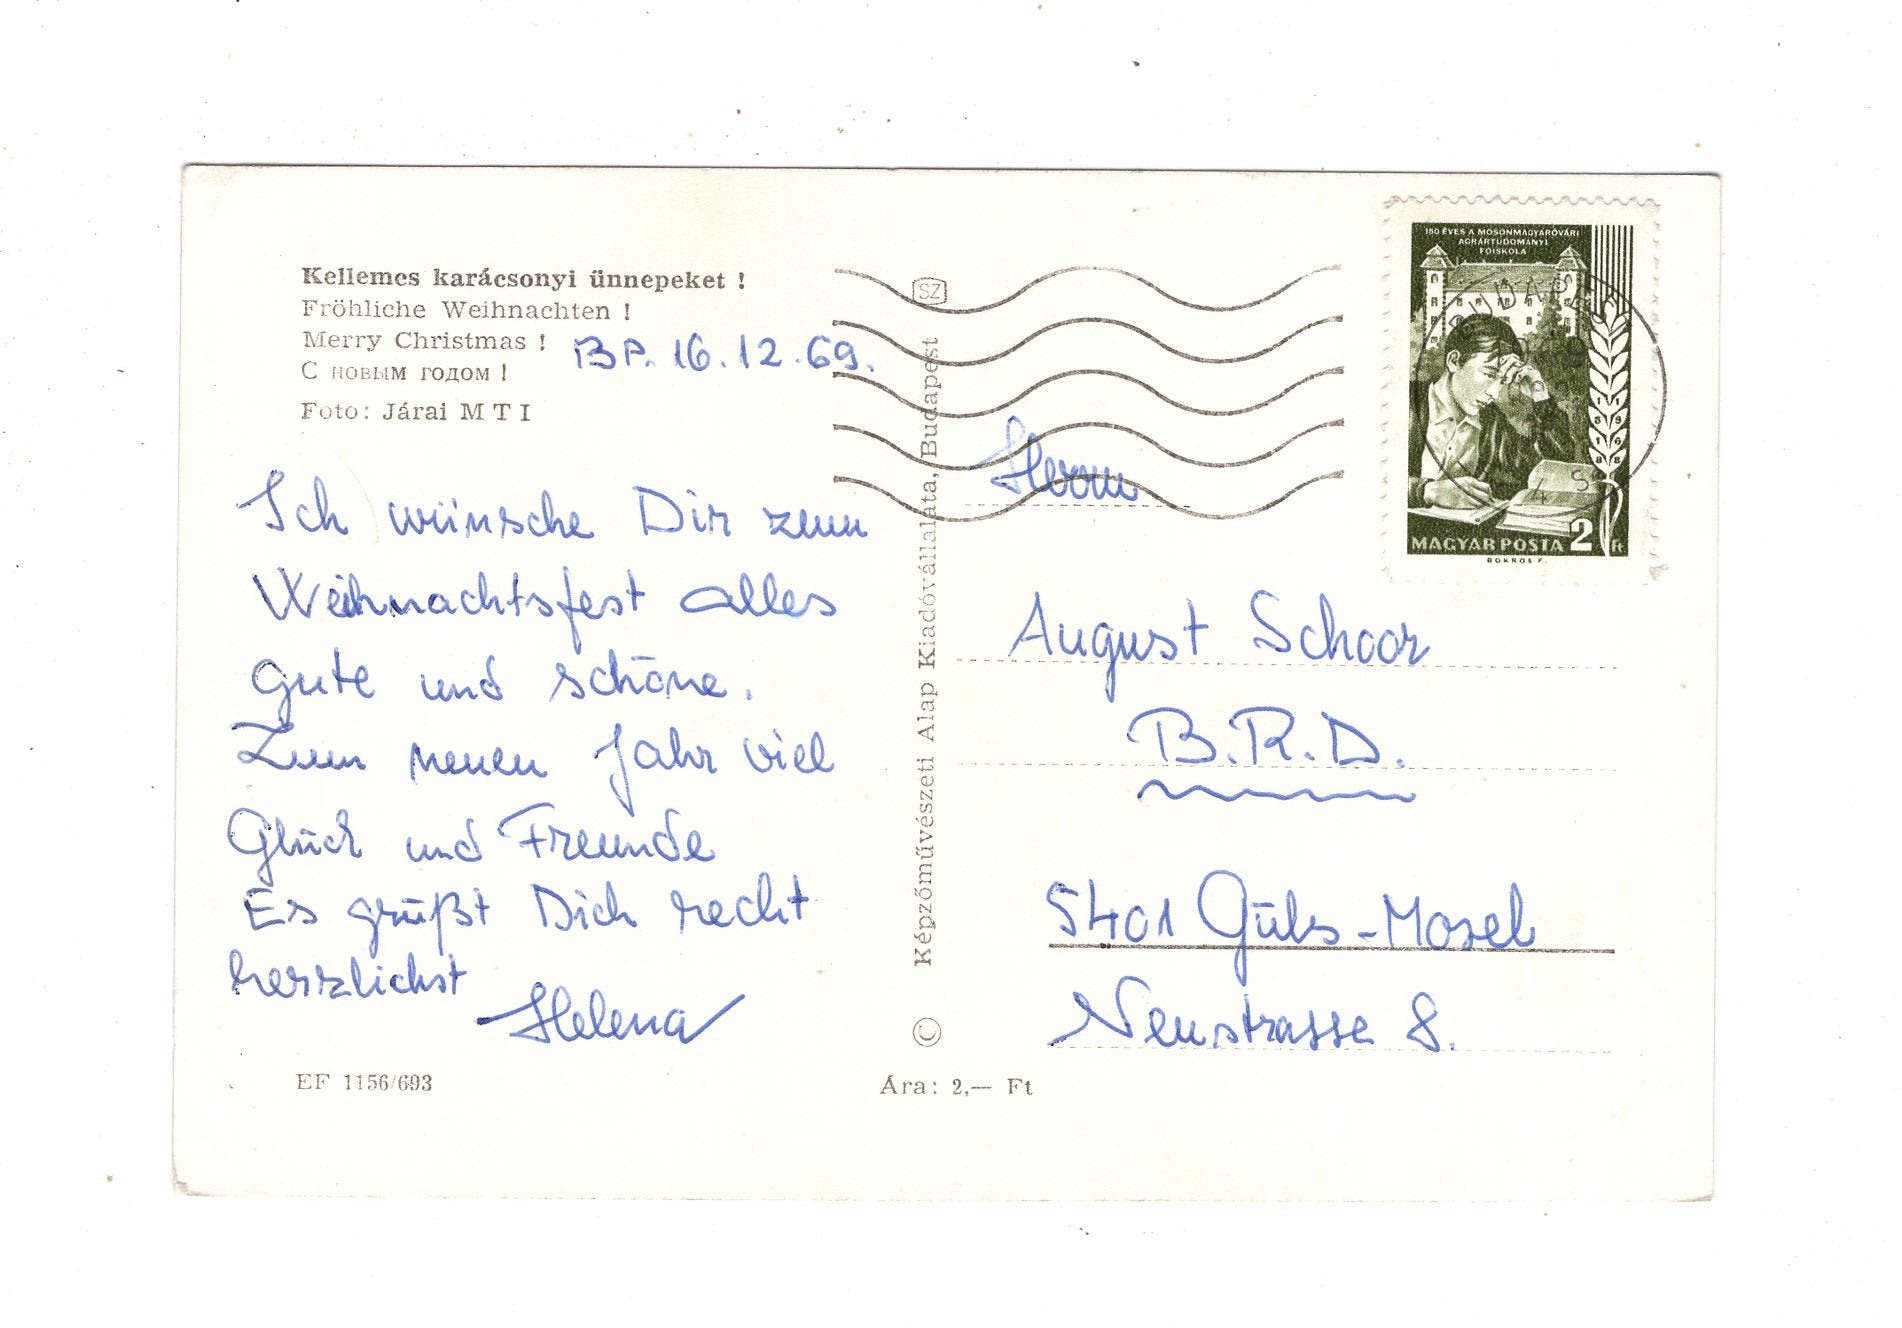 Kellemes karácsonyi ünnepeket !
Fröhliche Weihnachten !
Merry Christmas !
С новым годом !
BP. 16.12.69.
Foto: Járai M T I
Ich wünsche Dir zum
Weihnachtsfest alles
gute und schöne.
Zum neuen Jahr viel
Glück und Freunde
Es grüßt Dich recht
herzlichst
Helena
EF 1156/693
SZ
Képzőművészeti Alap Kiadóvállalata, Budapest
©
Ára: 2,— Ft
150 ÉVES A MOSONMAGYARÓVÁRI
AGRÁRTUDOMÁNYI
FŐISKOLA
1818
1968
MAGYAR POSTA 2 Ft
BOKROS F.
BUDAPEST
Herrn
August Schoor
B.R.D.
5401 Güls-Mosel
Neustrasse 8.